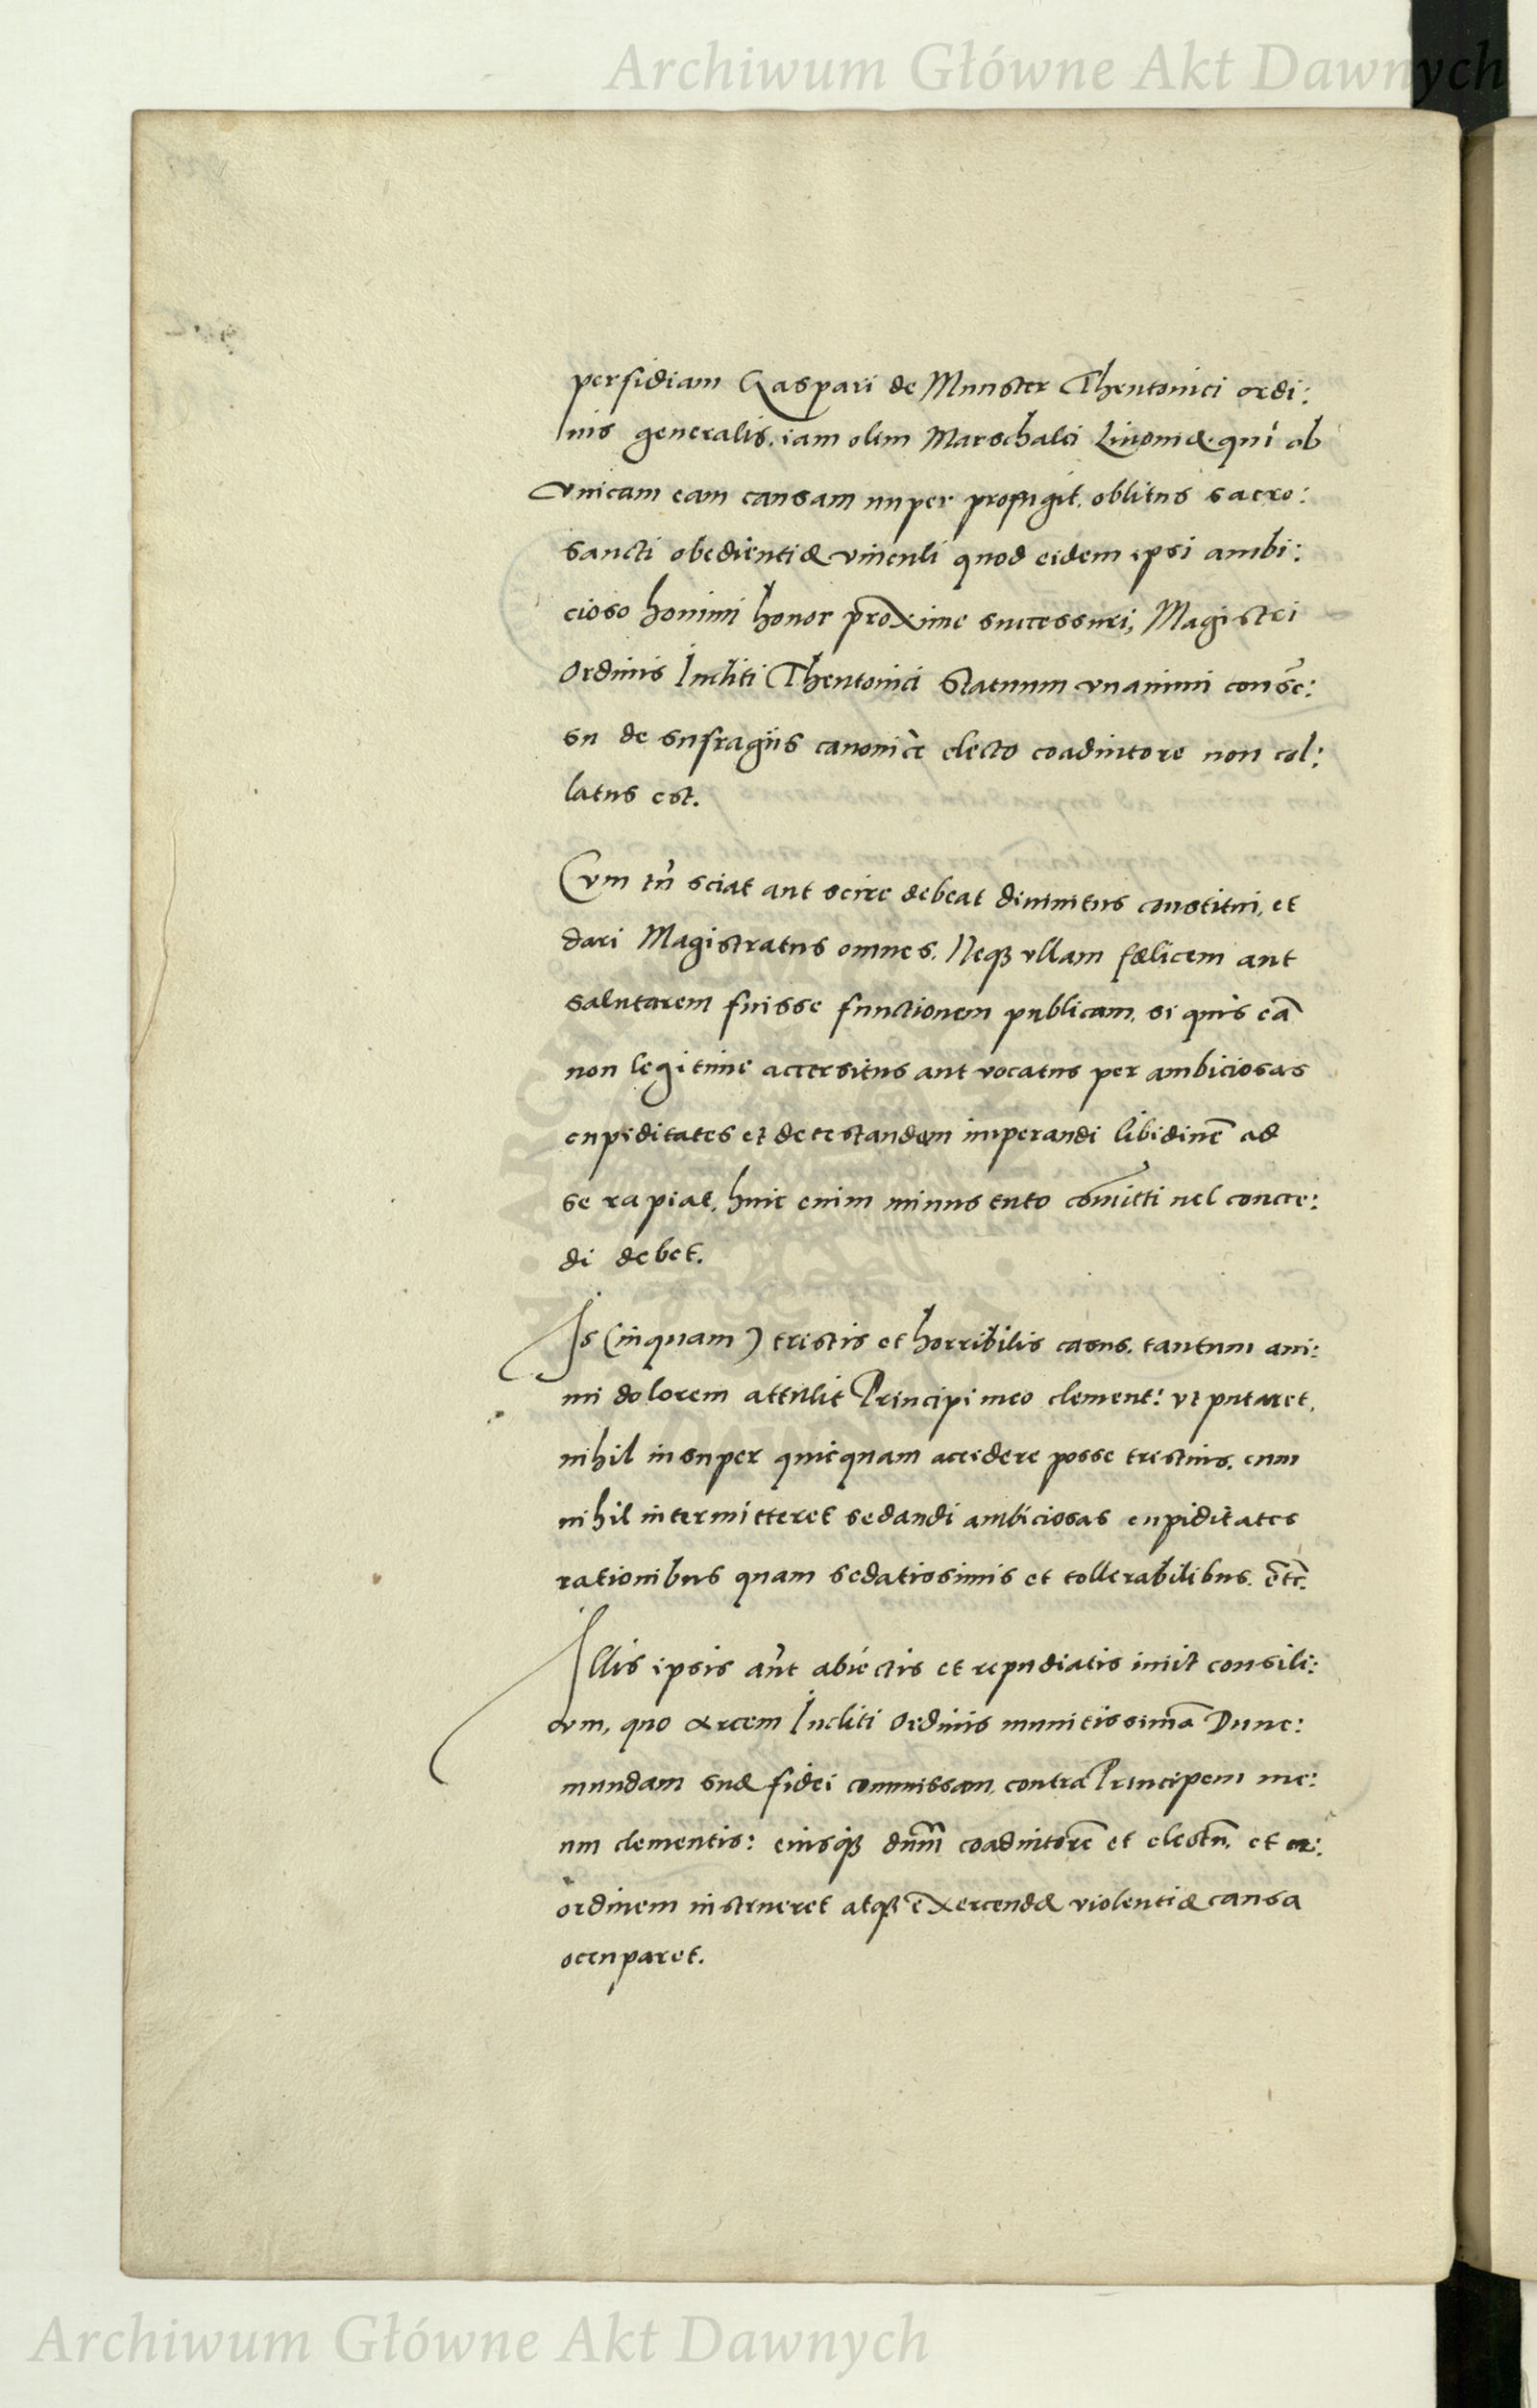 Archiwum Główne Akt Dawnych
perfidiam Gaspari de Munster Theutonici ordi:
nis generalis, iam olim Marschalci Livoniæ, qui ob
vnicam eam causam nuper profugit, oblitus sacro:
sancti obedientiæ vinculi quod eidem ipsi ambi:
cioso homini honor proxime successuri, Magistri
Ordinis Incliti Theutonici Statuum vnanimi consē:
su de sufragiis canonicè electo coadiutore non col:
latus est.
Cum tn̄ sciat aut scire debeat divinitus constitui, et
dari Magistratus omnes. Neqꝫ vllam fælicem aut
salutarem fuisse functionem publicam, si quis eā
non legitime accersitus aut vocatus per ambiciosas
cupiditates et detestandam imperandi libidinē ad
se rapiat, huic enim minus tuto com̄itti uel concre:
di debet.
Is (inquam) tristis et horribilis casus, tantum ani:
mi dolorem attulit Principi meo clement: vt putaret,
nihil insuper quicquam accidere posse tristius, cum
nihil intermitteret sedandi ambiciosas cupiditates
rationibus quam sedatissimis et tollerabilibus. etc̄.
Illis ipsis aūt abiectis et repudiatis iniit consili:
um, quo arcem Incliti Ordinis munitissimā Dune:
mundam suæ fidei commissam, contra Principem me:
um clementis: eiusqꝫ dn̄um coadiutorē et electū, et
ordinem instrueret atqꝫ exercendæ violentiæ causa
occuparet.
Archiwum Główne Akt Dawnych